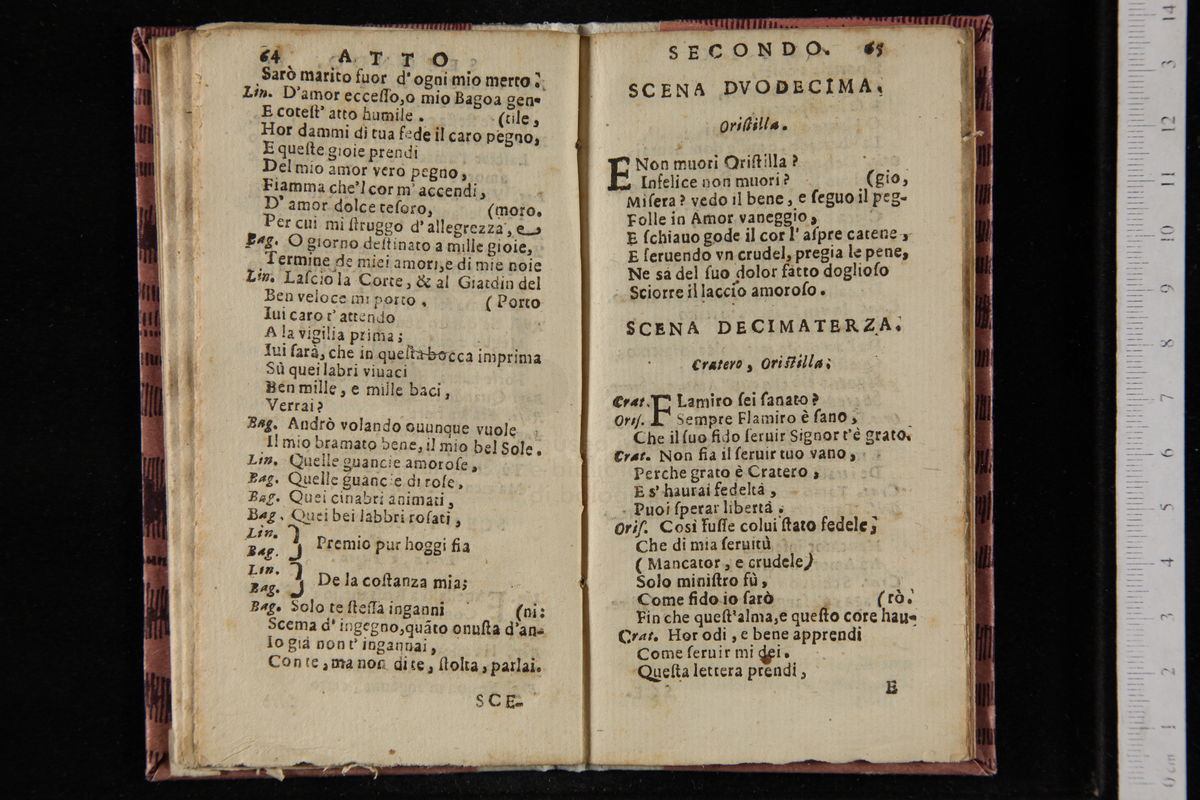 64 ATTO
Sarò marito fuor d'ogni mio merto.
Lin. D'amor ecceſſo, o mio Bagoa gen-
E coteſt' atto humile. (tile,
Hor dammi di tua fede il caro pegno,
E queſte gioie prendi
Del mio amor vero pegno,
Fiamma che'l cor m'accendi,
D'amor dolce teſoro, (moro.
Per cui mi ſtruggo d'allegrezza, e
Bag. O giorno deſtinato a mille gioie,
Termine de miei amori, e di mie noie
Lin. Laſcio la Corte, & al Giardin del
Ben veloce mi porto. (Porto
Iui caro t'attendo
A la vigilia prima;
Iui farà, che in queſta bocca imprima
Sù quei labri viuaci
Ben mille, e mille baci,
Verrai?
Bag. Andrò volando ouunque vuole
Il mio bramato bene, il mio bel Sole.
Lin. Quelle guancie amoroſe,
Bag. Quelle guancie di roſe,
Bag. Quei cinabri animati,
Bag. Quei bei labbri roſati,
Lin. }
Bag. } Premio pur hoggi fia
Lin. }
Bag. } De la coſtanza mia;
Bag. Solo te ſteſſa inganni (ni:
Scema d'ingegno, quãto onuſta d'an-
Io già non t'ingannai,
Con te, ma non di te, ſtolta, parlai.
SCE-
SECONDO. 65
SCENA DVODECIMA.
Oriſtilla.
E Non muori Oriſtilla?
Infelice non muori? (gio,
Miſera? vedo il bene, e ſeguo il peg-
Folle in Amor vaneggio,
E ſchiauo gode il cor l'aſpre catene,
E ſeruendo vn crudel, pregia le pene,
Ne sa del ſuo dolor fatto doglioſo
Sciorre il laccio amoroſo.
SCENA DECIMATERZA.
Cratero, Oriſtilla;
Crat. FLamiro ſei ſanato?
Oriſ. Sempre Flamiro è ſano,
Che il ſuo fido ſeruir Signor t'è grato.
Crat. Non fia il ſeruir tuo vano,
Perche grato è Cratero,
E s'haurai fedeltà,
Puoi ſperar libertà.
Oriſ. Così fuſſe colui ſtato fedele;
Che di mia ſeruitù
(Mancator, e crudele)
Solo miniſtro fù,
Come fido io ſarò (rò.
Fin che queſt'alma, e queſto core hau-
Crat. Hor odi, e bene apprendi
Come ſeruir mi dei.
Queſta lettera prendi,
E
14
13
12
11
10
9
8
7
6
5
4
3
2
1
0 cm